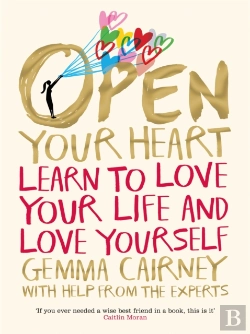 OPEN
YOUR HEART
LEARN TO LOVE
YOUR LIFE AND
LOVE YOURSELF
GEMMA CAIRNEY
WITH HELP FROM THE EXPERTS
'If you ever needed a wise best friend in a book, this is it'
Caitlin Moran
B